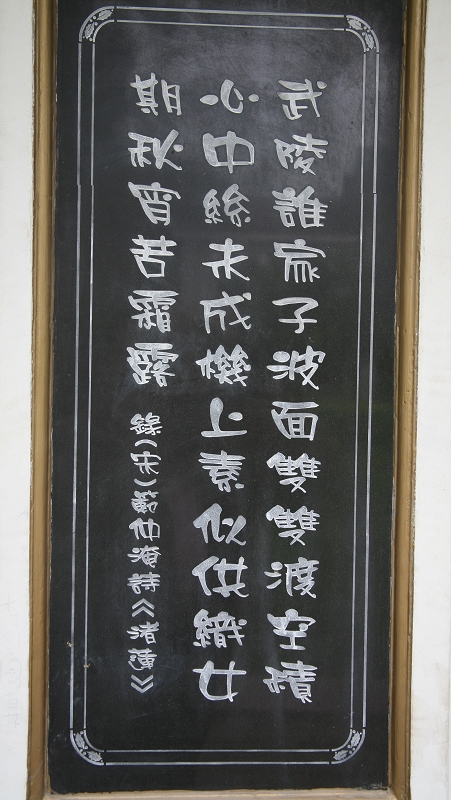 武陵誰家子波面雙雙渡空積
心中絲未成機上素似供織女
期秋宵苦霜露
錄(宋)範仲淹詩《渚蓮》